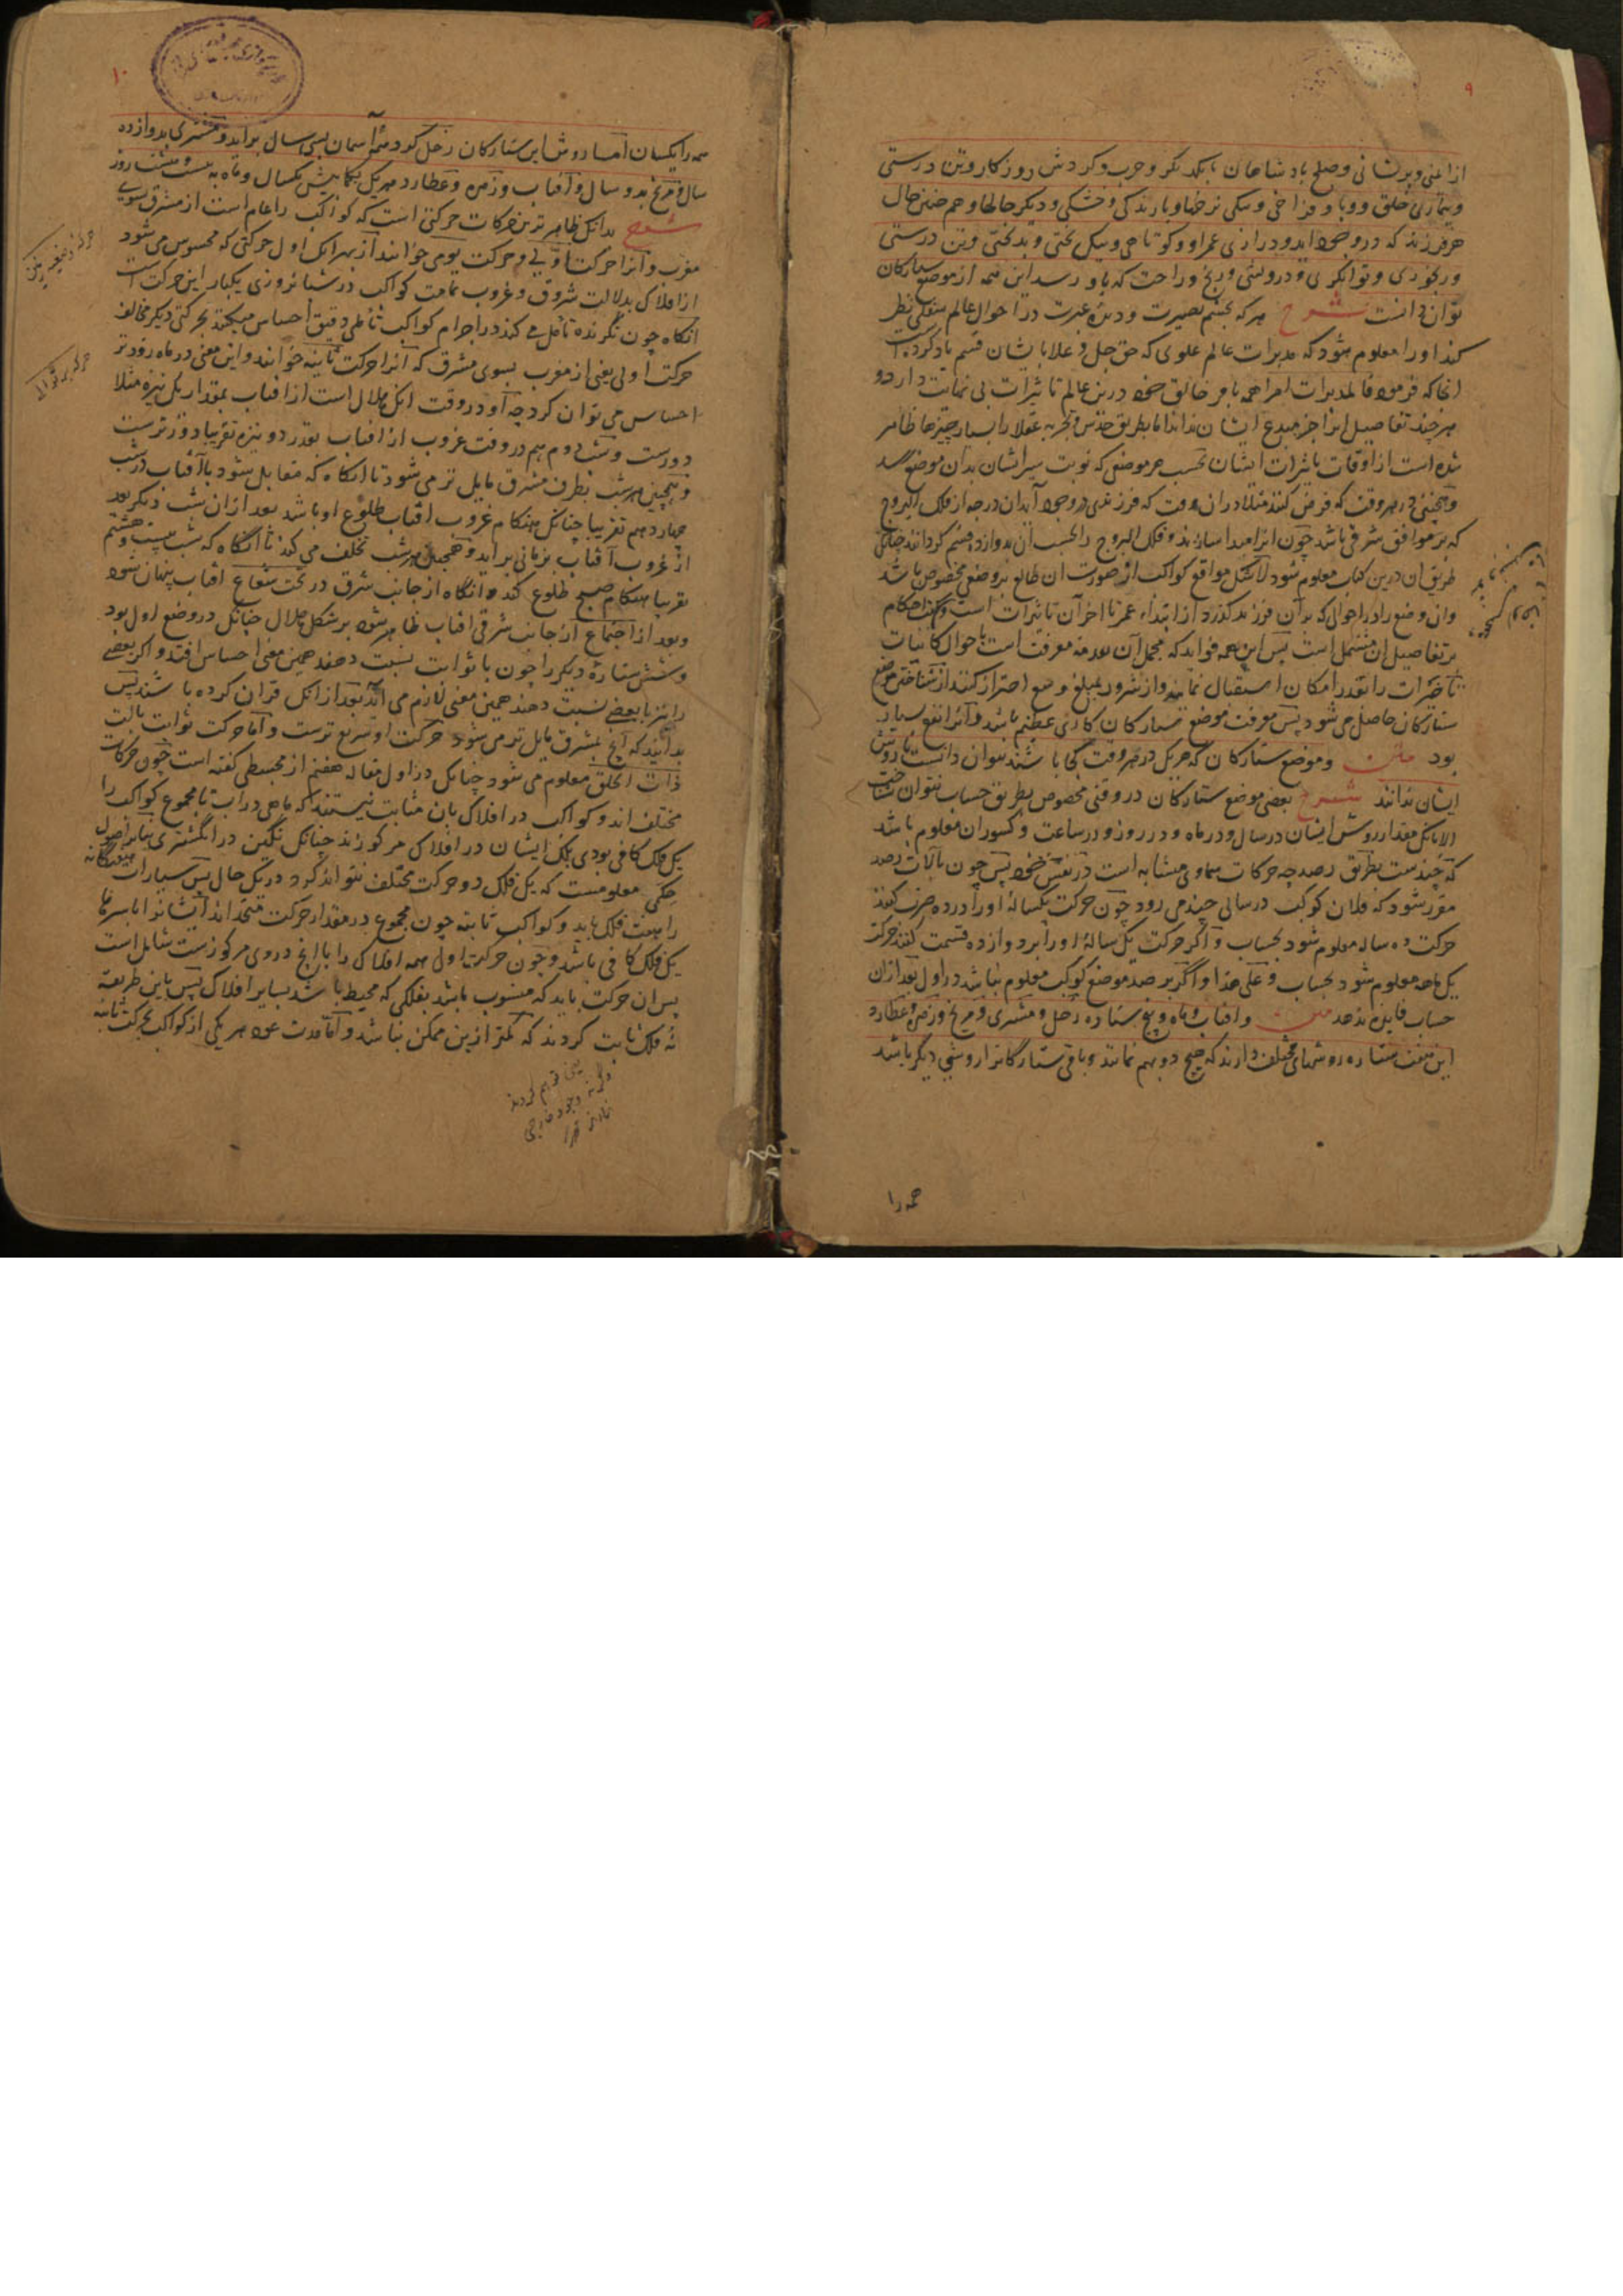 ۹
از ایمنی و پریشانی و صلح پادشاهان با یکدیگر و حرب و گردش روزگار و تن درستی
و بیماری خلق و وبا و فراخی و تنگی نرخها و بارندگی و خشکی و دیگر حالها و هم چنین حال
هر فرزند که در وجود آید و درازی عمر او و کوتاهی و نیک بختی و بدبختی و تن درستی
و رنجوری و توانگری و درویشی و رنج و راحت که باو رسد این همه از موضع ستارکان
توان دانست شرح هر که بچشم بصیرت و دیده عبرت در احوال عالم سفلی نظر
کند او را معلوم شود که مدبرات عالم علوی که حق جل و علا بایشان قسم یاد کرده است
آنجا که فرمود فالمدبرات امرا همه بامر خالق خود درین عالم تاثیرات بی نهایت دارد و
هر چند تفاصیل آنرا جز مبدع ایشان نداند اما بطریق حدس و تجربه عقلا را بسیار چیزها ظاهر
شده است از اوقات تاثیرات ایشان بحسب هر موضعی که نوبت سیر ایشان بدان موضع رسد
و همچنین در هر وقت که فرض کنند مثلا در ان وقت که فرزندی در وجود آید آن درجه از فلک البروج
که بر موافق شرقی باشد چون آنرا مبدا سازند و فلک البروج را بحسب آن بدوازده قسم گردانند چنانکه
طریق آن درین کتاب معلوم شود لاشک مواقع کواکب از صورت آن طالع بر وضعی مخصوص باشد
و آن وضع را در احوالی که بر آن فرزند گذرد از ابتداء عمر تا آخر آن تاثیرات است و کتب احکام
بر تفاصیل آن مشتمل است پس این همه فواید که مجمل آن معرفت است باحوال کاینات
تا خیرات را بقدر امکان استقبال نمایند و از شرور بمبلغ وسع احتراز کنند از شناختن موضع
ستارکان حاصل می شود پس معرفت موضع ستارکان کاری عظیم باشد و آنرا نفع بسیار
بود متن و موضع ستارکان که هر یک در هر وقت کجا باشند نتوان دانست تا روش
ایشان ندانند شرح یعنی موضع ستارکان در وقتی مخصوص بطریق حساب نتوان شناخت
الا بانکه مقدار روش ایشان در سال و در ماه و در روز و در ساعت و کسور آن معلوم باشد
که چندست بطریق رصد چه حرکات سماوی متشابه است در نفس خود پس چون بآلات رصد
مقرر شود که فلان کوکب در سالی چند می رود چون حرکت یکساله او را در ده ضرب کنند
حرکت ده ساله معلوم شود بحساب و اگر حرکت یک ساله او را بر دوازده قسمت کنند حرکت
یک ماهه معلوم شود بحساب و علی هذا و اگر برصد موضع کوکب معلوم نباشد در اول بعد از آن
حساب فایده ندهد متن و آفتاب و ماه و پنج ستاره زحل و مشتری و مریخ و زهره و عطارد
این هفت ستاره روشهای مختلف دارند که هیچ دو بهم نمانند و باقی ستارگانرا روشی دیگر باشد
همه را
۱۰
همه را یکسان اما روش این ستارکان زحل گرد همه آسمان بسی سال برآید و مشتری بدوازده
سال و مریخ بدو سال و آفتاب و زهره و عطارد هر یک بکمابیش یکسال و ماه به بیست و هشت روز
شرح بدانکه ظاهر ترین حرکات حرکتی است که کواکب را عام است از مشرق بسوی
مغرب و آنرا حرکت اولی و حرکت یومی خوانند از بهر آنک اول حرکتی که محسوس می شود
از افلاک بدلالت شروق و غروب تمامت کواکب در شبانروزی یکبار این حرکت است
آنکاه چون نگرنده تامل می کند در اجرام کواکب تاملی دقیق احساس میکند بحرکتی دیگر مخالف
حرکت اولی یعنی از مغرب بسوی مشرق که آنرا حرکت ثانیه خوانند و این معنی در ماه زودتر
احساس می توان کرد چه او در وقت آنک هلال است از آفتاب بمقدار یک نیزه مثلا
دورست و شب دوم هم در وقت غروب از آفتاب بقدر دو نیزه تقریبا دورترست
و همچنین هر شب بطرف مشرق مایل تر می شود تا آنکاه که مقابل شود با آفتاب در شب
چهاردهم تقریبا چنانک هنگام غروب آفتاب طلوع او باشد بعد ازان شب دیگر بعد
از غروب آفتاب بزمانی برآید و همچنین هر شب تخلف می کند تا آنگاه که شب بیست و هشتم
تقریبا هنگام صبح طلوع کند و آنگاه از جانب شرق در تحت شعاع آفتاب پنهان شود
و بعد از اجتماع از جانب شرقی آفتاب ظاهر شود بر شکل هلال چنانک در وضع اول بود
و شش ستاره دیگر را چون با ثوابت نسبت دهند همین معنی احساس افتد و اگر بعضی
را نیز با بعضی نسبت دهند همین معنی لازم می آید بعد از آنک قران کرده باشند پس
بدانند که آنچ بمشرق مایل تر می شود حرکت او سریع ترست و اما حرکت ثوابت بآلت
ذات الحلق معلوم می شود چنانک در اول مقاله هفتم از مجسطی گفته است چون حرکات
مختلف اند و کواکب در افلاک بان مثابت نیستند که ماهی در آب تا مجموع کواکب را
یک فلک کافی بودی بلک ایشان در افلاک مرکوزند چنانک نگین در انگشتری بنابر اصول
حکمی معلومست که یک فلک دو حرکت مختلف نتواند کرد در یک حال پس سیارات هفتگانه
را هفت فلک باید و کواکب ثابته چون مجموع در مقدار حرکت متحد اند ایشانرا باسرها
یک فلک کافی باشد و چون حرکت اول همه افلاک را با آنچ در وی مرکوزست شاملست
پس آن حرکت باید که منسوب باشد بفلکی که محیط باشد بسایر افلاک پس باین طریقه
نه فلک ثابت کردند که کمتر ازین ممکن نباشد و اما مدت عود هر یکی از کواکب بحرکت ثانیه
یعنی توهم کردند
وگرنه وجود خارجی